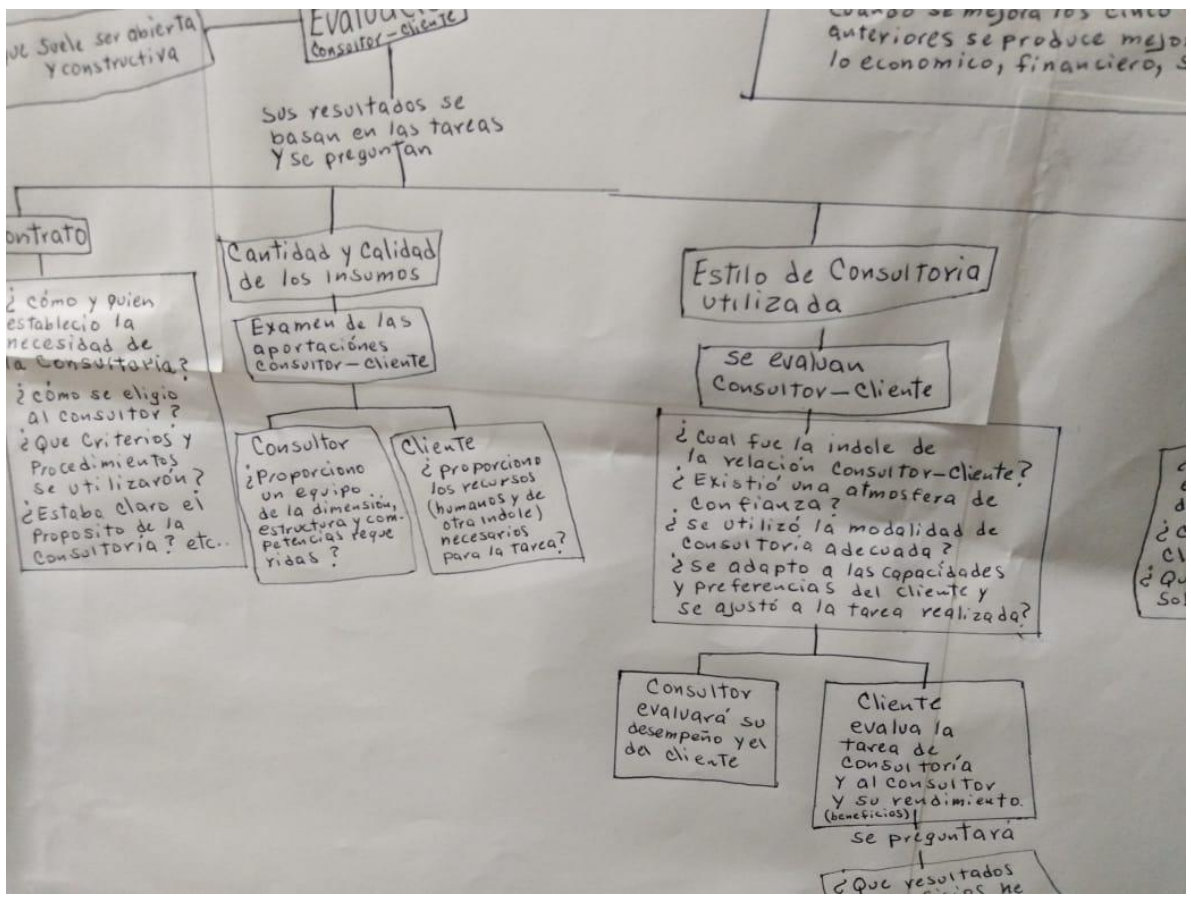 que suele ser abierta
y constructiva
Consultor-cliente
Cuando se mejora los cinco
anteriores se produce
lo economico, financiero,
Sus resultados se
basan en las tareas
Y se preguntan
Cantidad y Calidad
de los insumos
Examen de las
aportaciónes
Consultor-cliente
¿cómo y quien
establecio la
necesidad de
la Consultoría?
¿cómo se eligio
al consultor?
¿Que Criterios y
Procedimientos
se utilizarón?
¿Estaba claro el
Proposito de la
Consultoría? etc..
Consultor
¿Proporciono
un equipo..
de la dimensión,
estructura y com-
petencias reque
ridas?
Cliente
¿proporciono
los recursos
(humanos y de
otra indole)
necesarios
para la tarea?
Estilo de Consultoria
utilizada
se evaluan
Consultor-Cliente
¿Cual fue la indole de
la relación Consultor-Cliente?
¿Existió una atmosfera de
confianza?
¿se utilizó la modalidad de
consultoria adecuada?
¿se adapto a las capacidades
y preferencias del cliente y
se ajustó a la tarea realizada?
Consultor
evaluará su
desempeño y el
del cliente
Cliente
evalua la
tarea de
consultoría
y al consultor
y su rendimiento.
(beneficios)
se preguntará
¿Que resultados
he